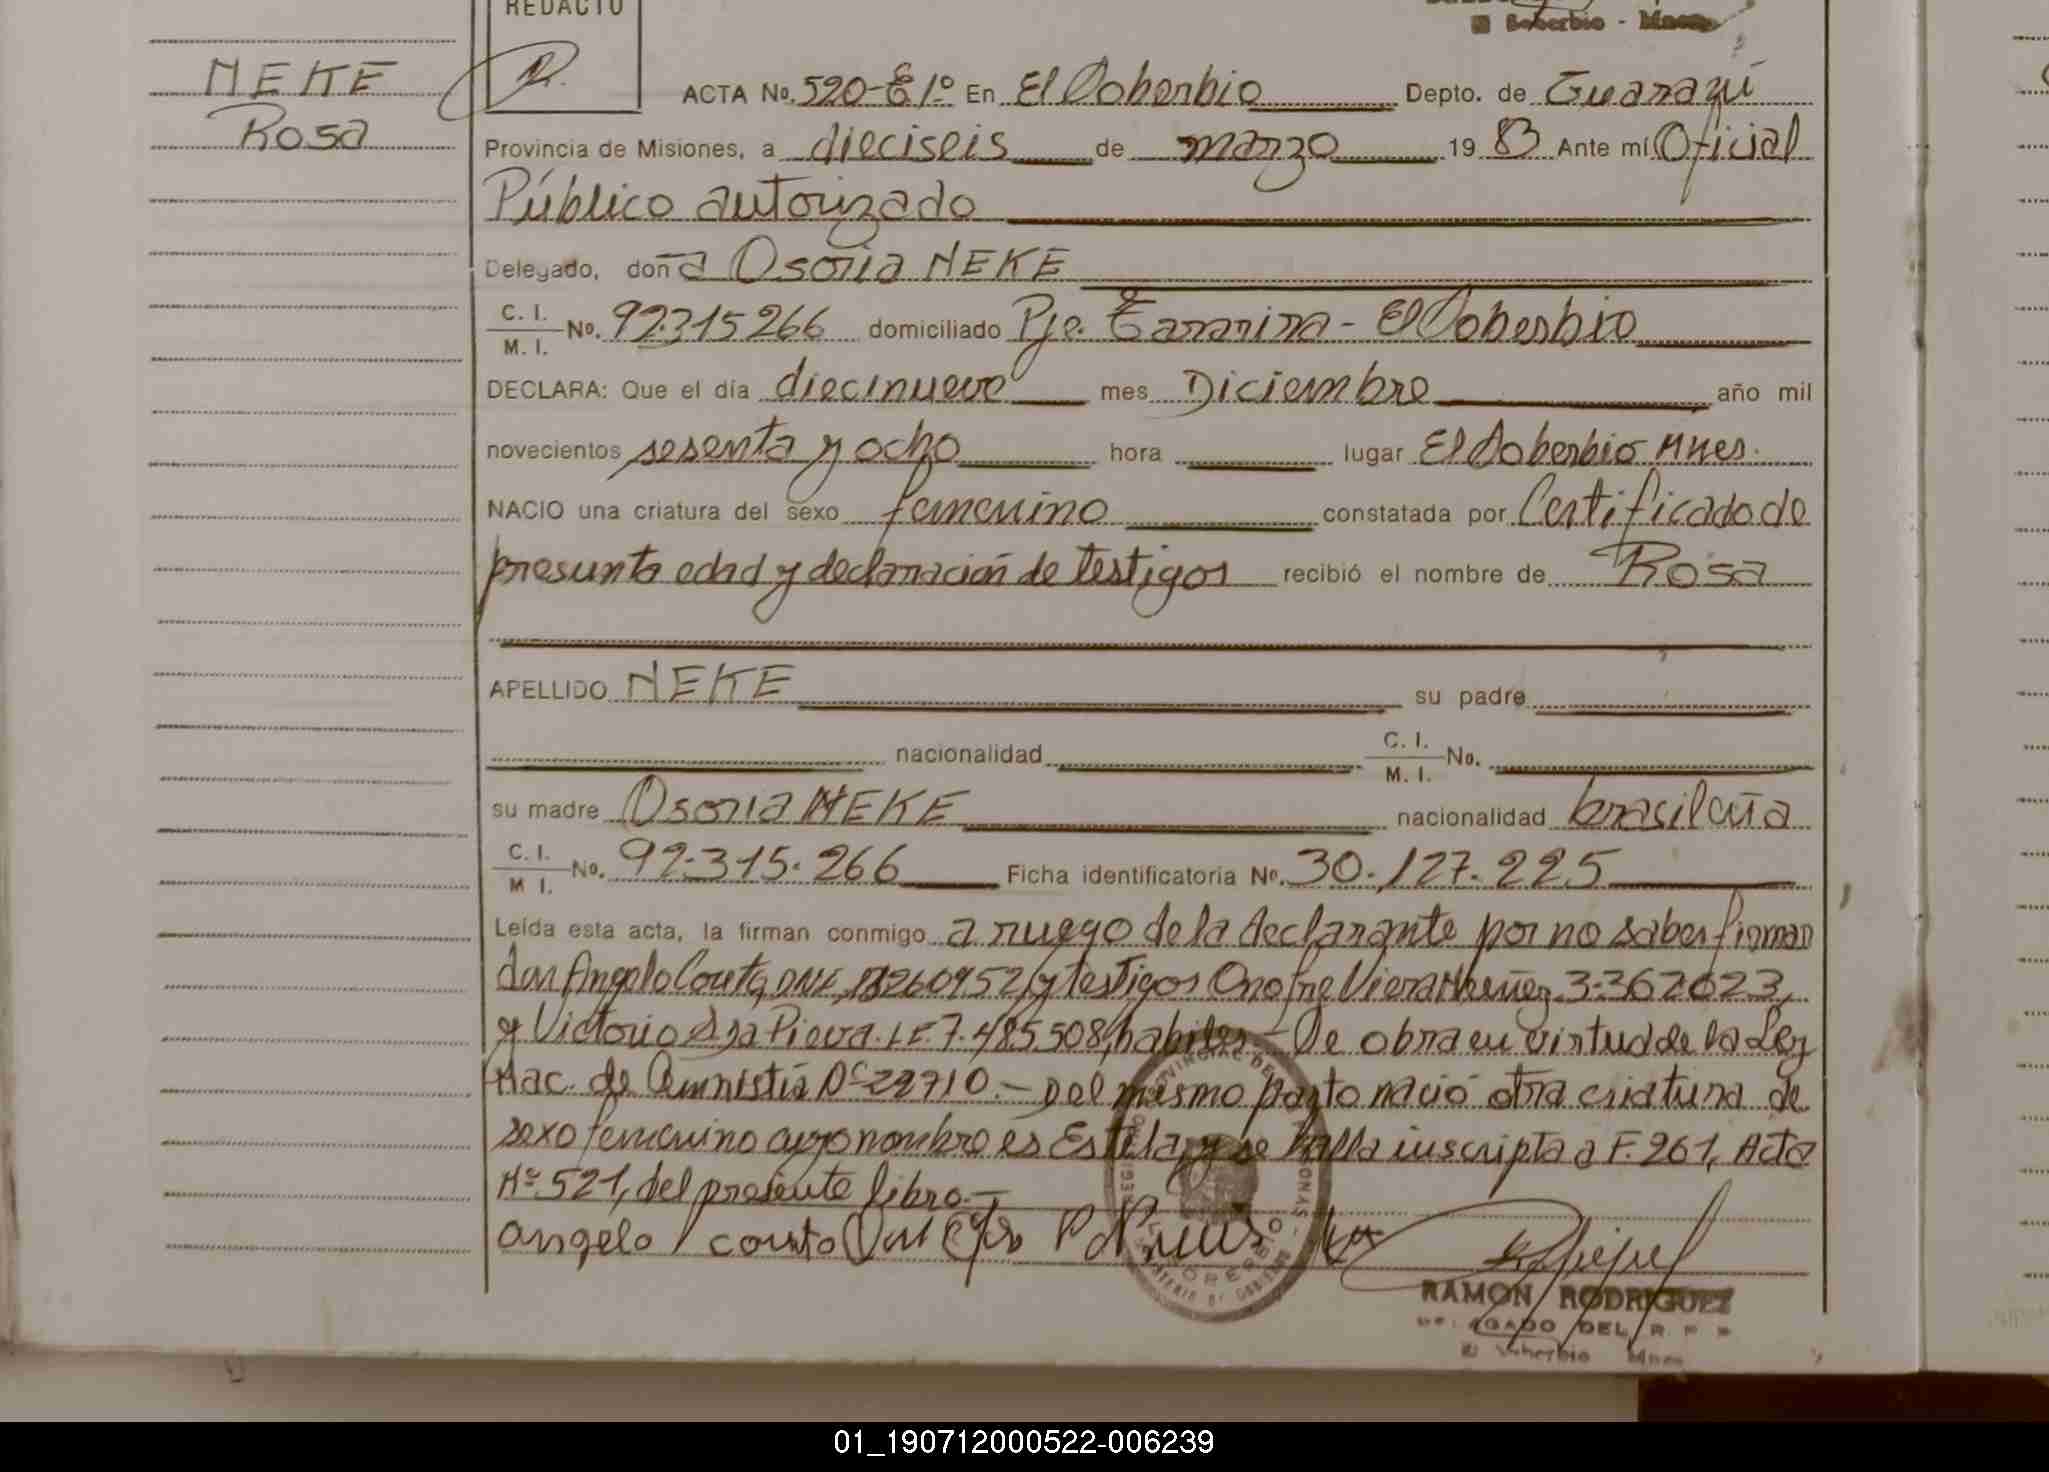 REDACTO
El Soberbio - Mnes
NEKE
Rosa
ACTA No. 520-E 1º En El Soberbio Depto. de Guaraní
Provincia de Misiones, a dieciseis de marzo 19 83 Ante mí Oficial
Público autorizado
Delegado, doña Osoria NEKE
C. I.
M. I. No. 92.315266 domiciliado Pje. Tararira - El Soberbio
DECLARA: Que el día diecinueve mes Diciembre año mil
novecientos sesenta y ocho hora lugar El Soberbio Mnes.
NACIO una criatura del sexo femenino constatada por Certificado de
presunta edad y declaración de testigos recibió el nombre de Rosa
APELLIDO NEKE su padre
nacionalidad C. I.
M. I. No.
su madre Osoria NEKE nacionalidad brasileña
C. I.
M I. No. 92.315.266 Ficha identificatoria No. 30.127.225
Leída esta acta, la firman conmigo a ruego de la declarante por no saber firmar
don Angelo Couto, y testigos Onofre Viera 3.362623,
y Victorio LE. 7.485.508, habiles - De obra en virtud de la Ley
Nac. de Amnistía Nº 22710.- Del mismo parto nació otra criatura de
sexo femenino cuyo nombre es Estela, y se halla inscripta a F. 261, Acta
Nº 521, del presente libro.-
angelo couto
RAMON RODRIGUEZ
DELEGADO DEL R. P. P
El Soberbio Mnes
01_190712000522-006239